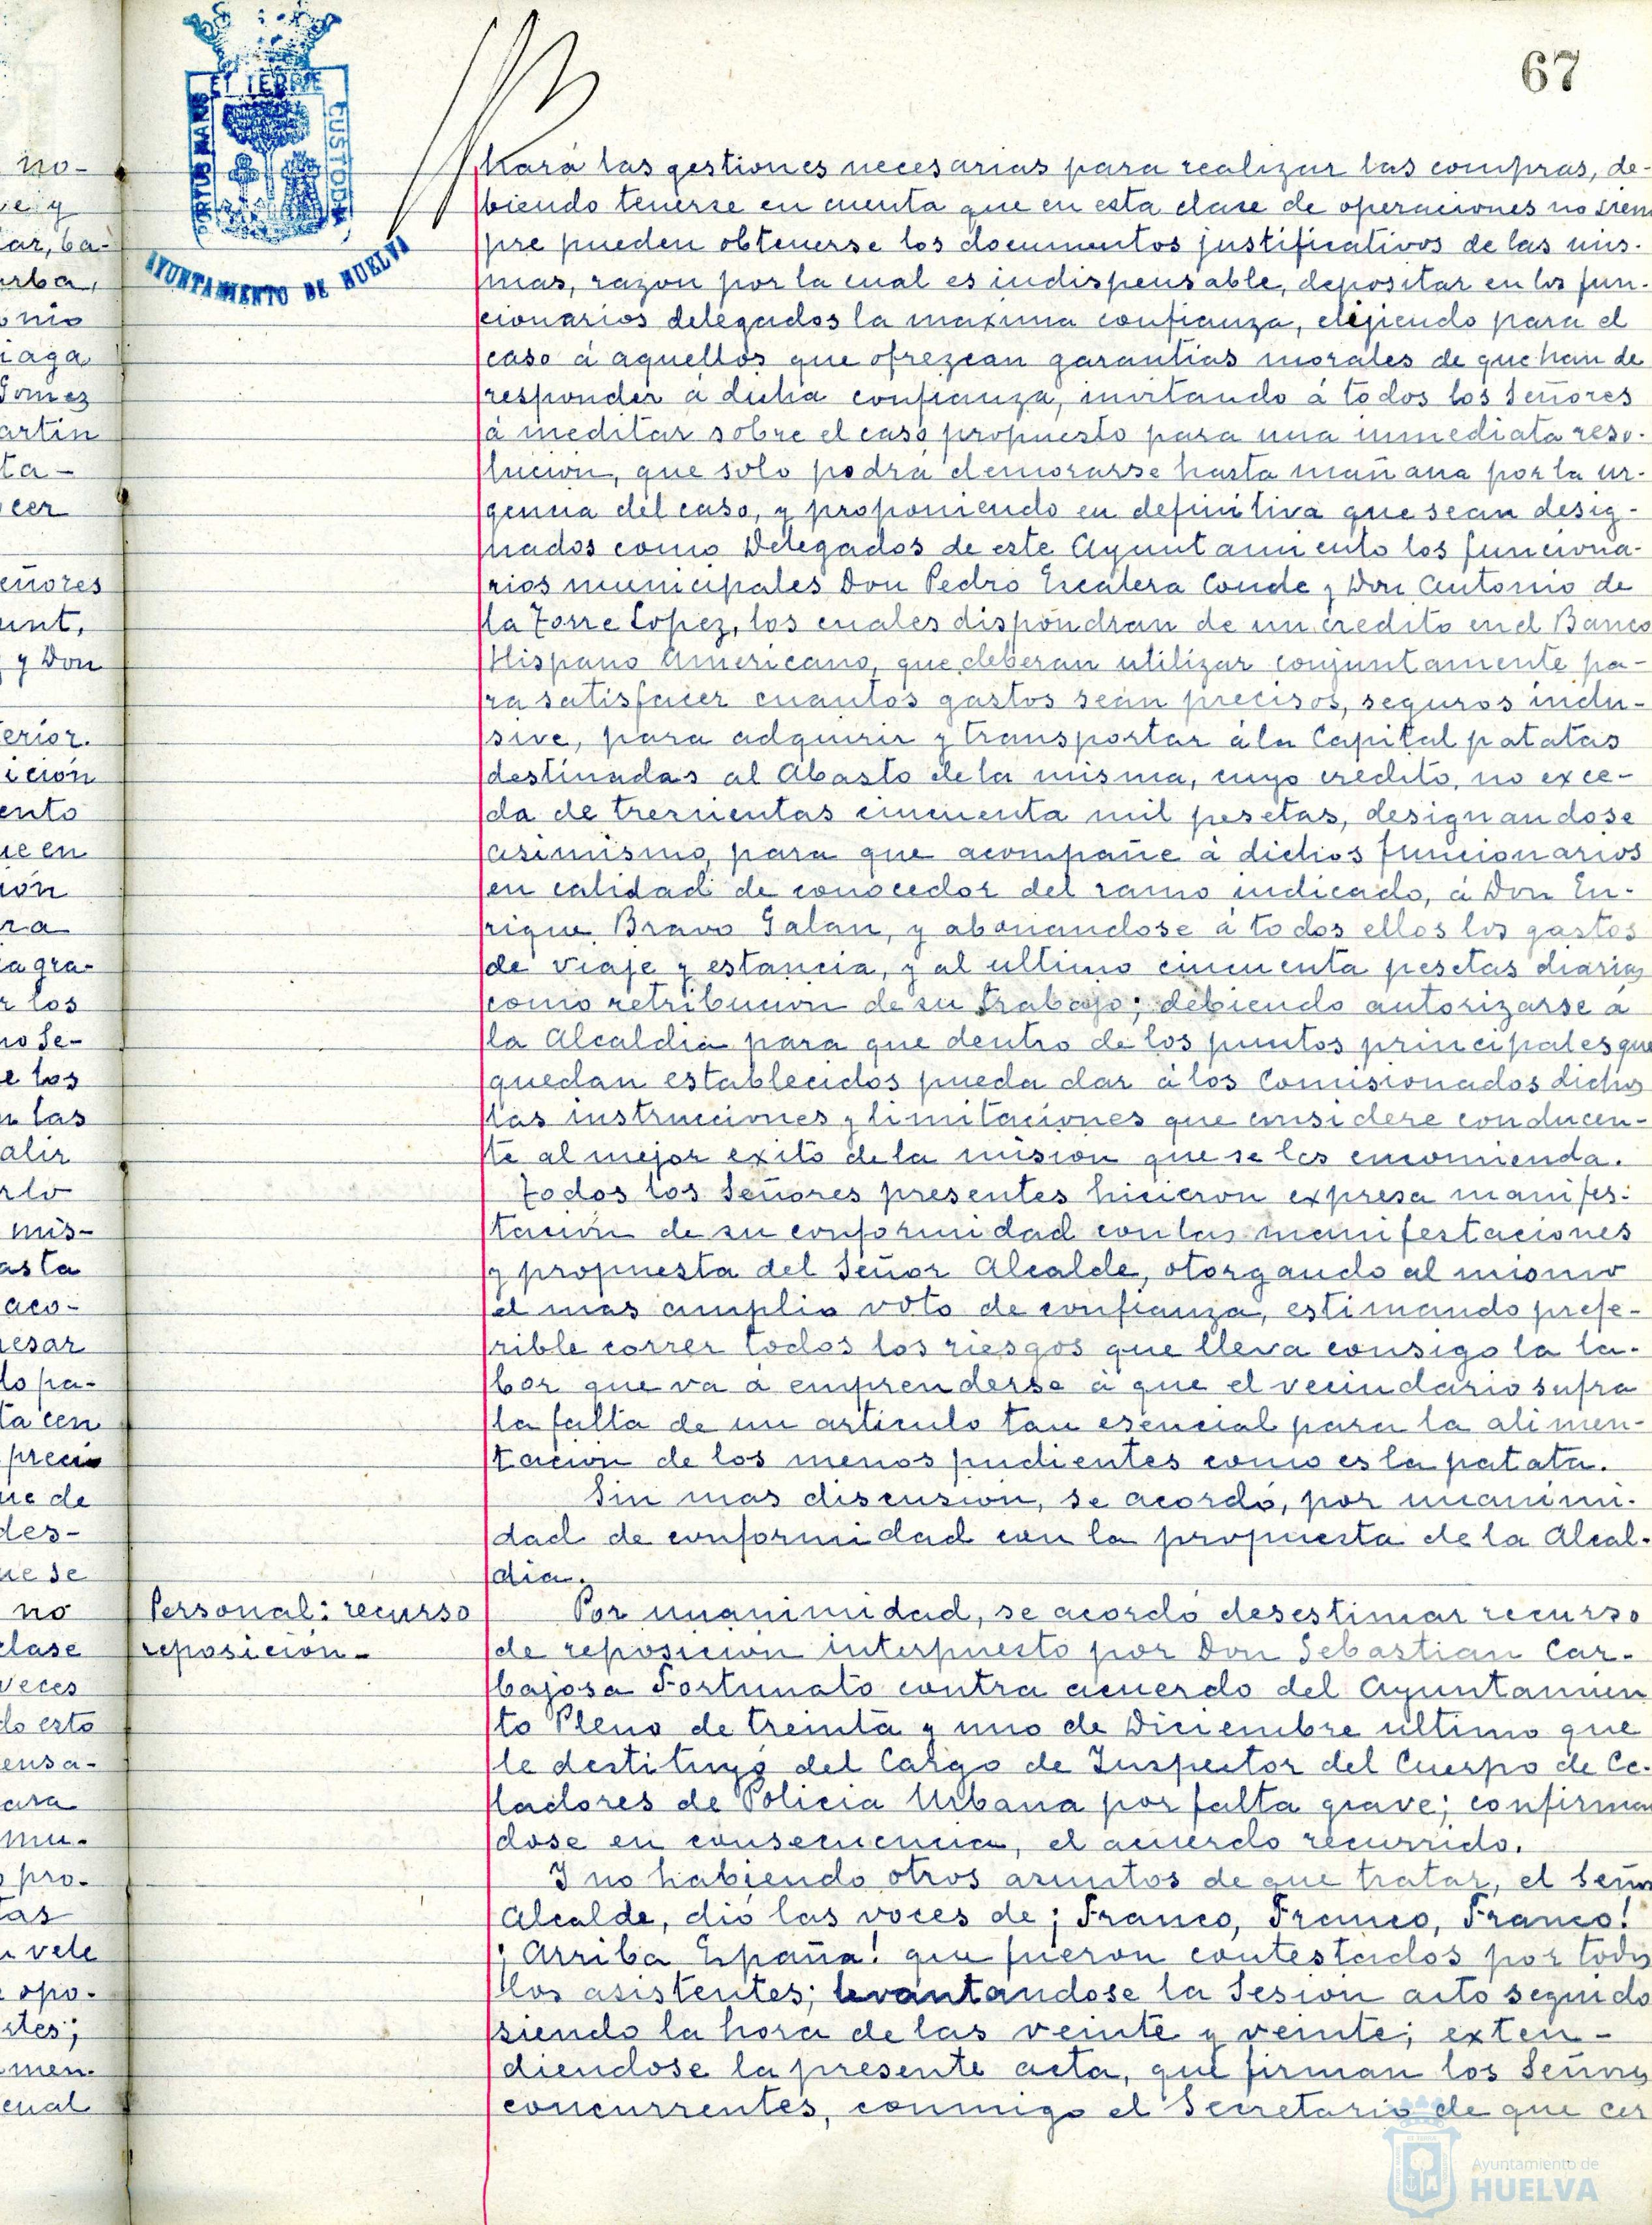 67
PORTUS MARIS ET TERRE CUSTODIA
AYUNTAMIENTO DE HUELVA
hará las gestiones necesarias para realizar las compras, de-
biendo tenerse en cuenta que en esta clase de operaciones no siem
pre pueden obtenerse los documentos justificativos de las mis-
mas, razon por la cual es indispensable, depositar en los fun-
cionarios delegados la maxima confianza, elijiendo para el
caso á aquellos que ofrezcan garantias morales de que han de
responder á dicha confianza, invitando á todos los Señores
á meditar sobre el caso propuesto para una inmediata reso-
lucion, que solo podrá demorarse hasta mañana por la ur-
gencia del caso, y proponiendo en definitiva que sean desig-
nados como Delegados de este Ayuntamiento los funciona-
rios municipales Don Pedro Escalera Conde y Don Antonio de
la Torre Lopez, los cuales dispondran de un credito en el Banco
Hispano Americano, que deberan utilizar conjuntamente pa-
ra satisfacer cuantos gastos sean precisos, seguros inclu-
sive, para adquirir y transportar á la Capital patatas
destinadas al Abasto de la misma, cuyo credito, no exce-
da de trescientas cincuenta mil pesetas, designandose
asimismo, para que acompañe á dichos funcionarios
en calidad de conocedor del ramo indicado, á Don En-
rique Bravo Galan, y abonandose á todos ellos los gastos
de viaje y estancia, y al ultimo cincuenta pesetas diarias
como retribucion de su trabajo; debiendo autorizarse á
la Alcaldia para que dentro de los puntos principales que
quedan establecidos pueda dar á los Comisionados dichos
las instrucciones y limitaciones que considere conducen-
te al mejor exito de la mision que se les encomienda.
Todos los Señores presentes hicieron expresa manifes-
tación de su conformidad con las manifestaciones
y propuesta del Señor Alcalde, otorgando al mismo
el mas amplio voto de confianza, estimando prefe-
rible correr todos los riesgos que lleva consigo la la-
bor que va á emprenderse á que el vecindario sufra
la falta de un articulo tan esencial para la alimen-
tacion de los menos pudientes como es la patata.
Sin mas discusion, se acordó, por unanimi-
dad de conformidad con la propuesta de la Alcal-
dia.
Personal: recurso
reposición-
Por unanimidad, se acordó desestimar recurso
de reposicion interpuesto por Don Sebastian Car-
bajosa Fortunato contra acuerdo del Ayuntamien
to Pleno de treinta y uno de Diciembre ultimo que
le destituyó del Cargo de Inspector del Cuerpo de Ce-
ladores de Policia Urbana por falta grave; confirman
dose en consecuencia, el acuerdo recurrido.
Y no habiendo otros asuntos de que tratar, el Señor
Alcalde, dió las voces de ¡Franco, Franco, Franco!
¡Arriba España! que fueron contestados por todos
los asistentes; levantandose la Sesion acto seguido
siendo la hora de las veinte y veinte; exten-
diendose la presente acta, que firman los Señores
concurrentes, conmigo el Secretario de que cer
no-
ar, ba-
Gomez
artin
ta-
cer
eñores
unt,
y Don
erior.
ición
ento
ue en
ión
ra
a gra-
r los
no Se-
e los
n las
alir
rlo
mis-
asta
aco-
esar
lo pa-
ta cen
precio
ue de
des-
ue se
no
clase
veces
do esto
ensa-
ara
mu-
pro-
tas
vele
opo-
rtes;
men-
cual
Ayuntamiento de
HUELVA